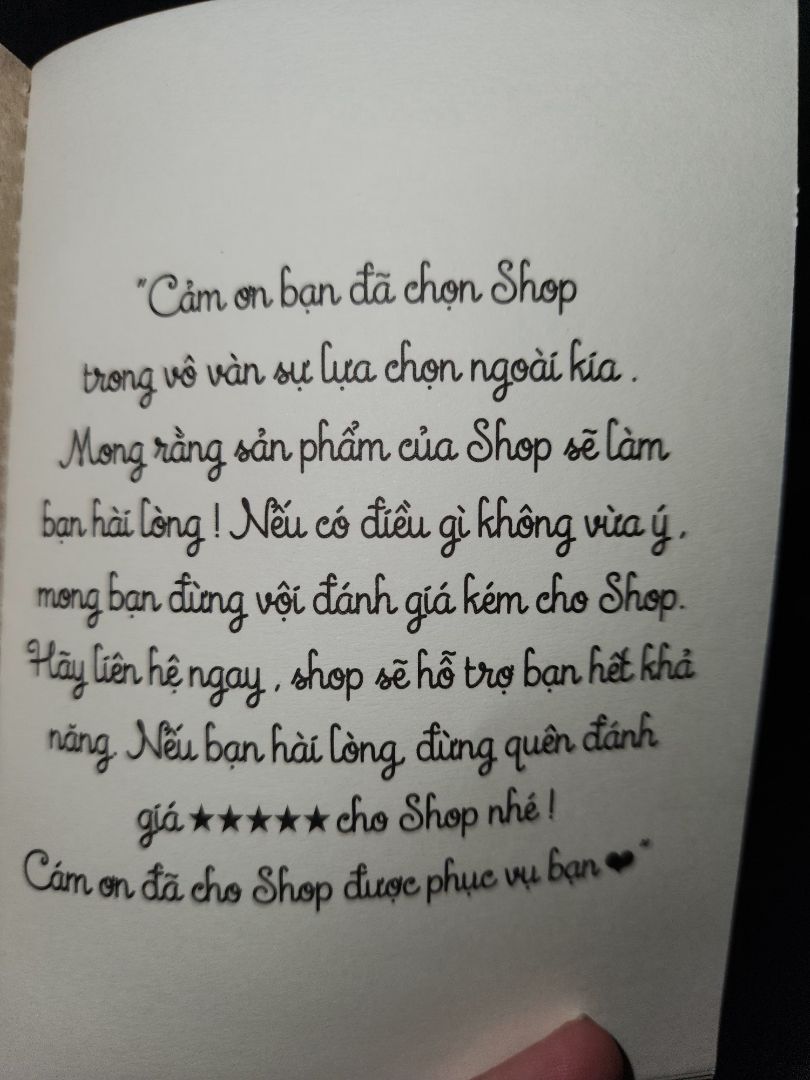 "Cảm ơn bạn đã chọn Shop
trong vô vàn sự lựa chọn ngoài kia .
Mong rằng sản phẩm của Shop sẽ làm
bạn hài lòng ! Nếu có điều gì không vừa ý ,
mong bạn đừng vội đánh giá kém cho Shop.
Hãy liên hệ ngay , shop sẽ hỗ trợ bạn hết khả
năng. Nếu bạn hài lòng, đừng quên đánh
giá ★★★★★ cho Shop nhé !
Cám ơn đã cho Shop được phục vụ bạn ❤"